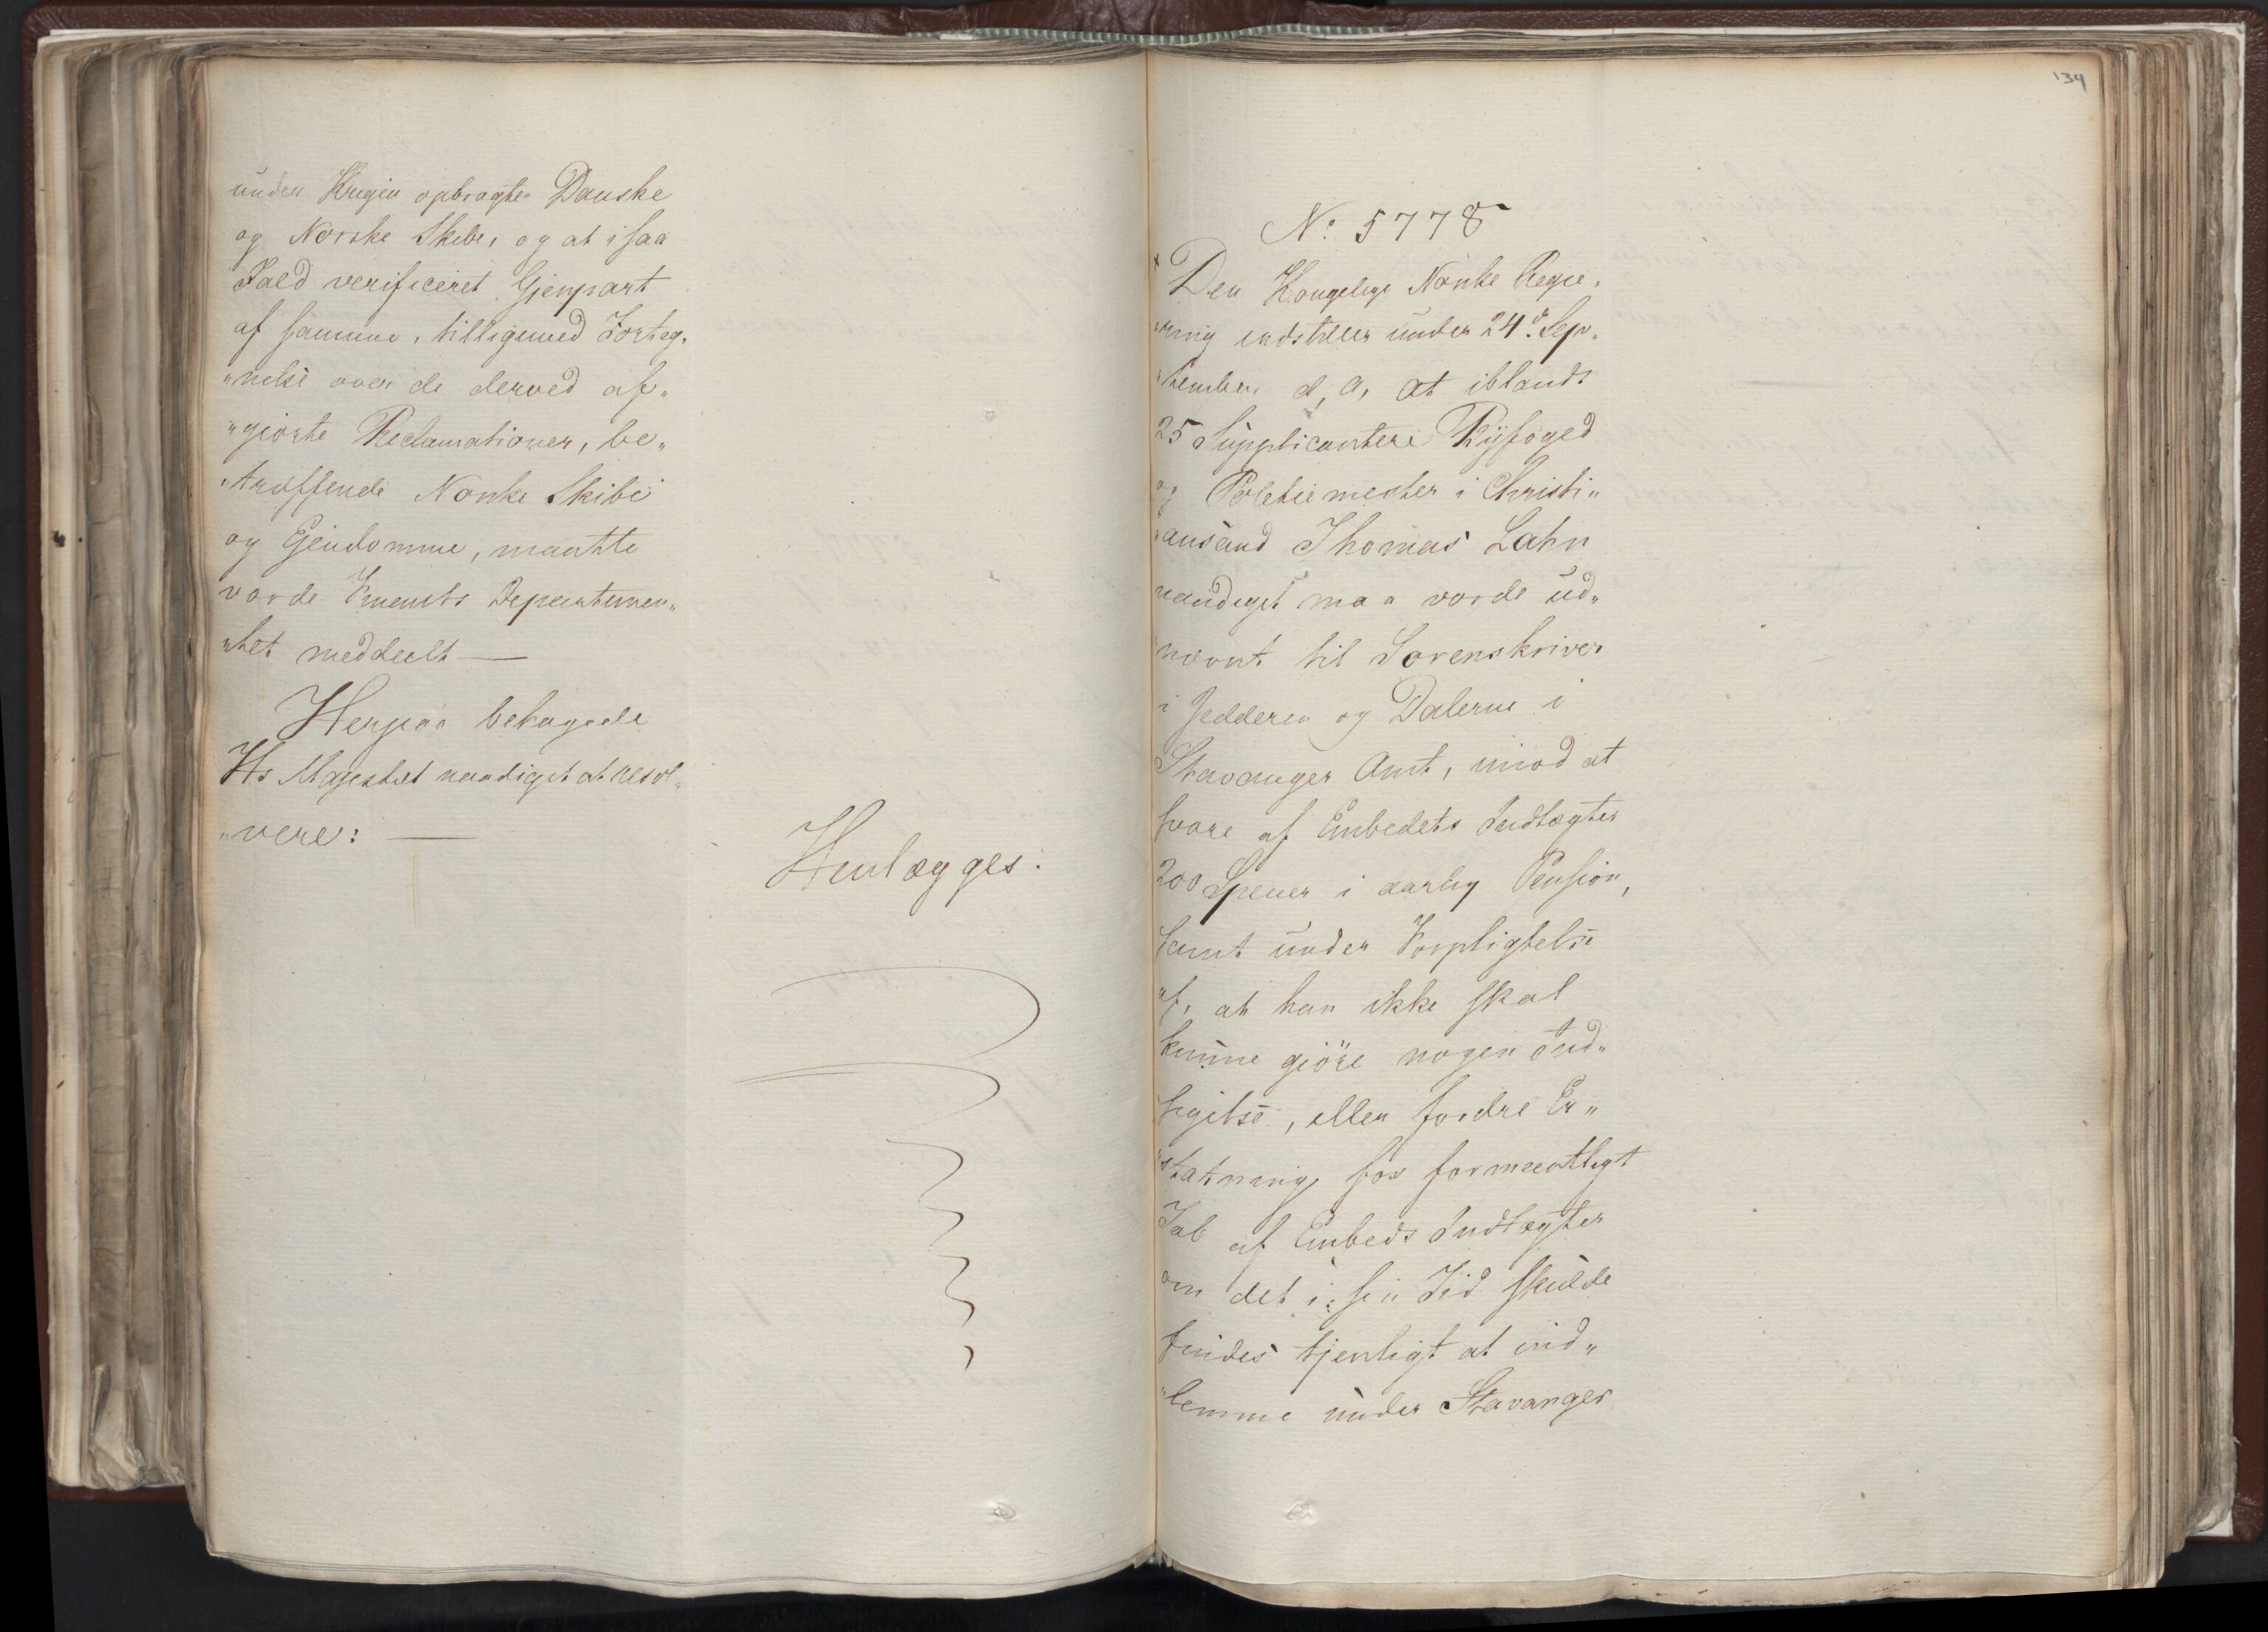 under Krigen opbragte Danske
og Norske Skibe, og at i saa
Fald verificeret Gjenpart
af samme, tilligemed Forteg„
„nelse over de derved af„
„giorte Reclamationer, be„
„træffende Norske Skibe
og Eiendomme, maatte
vorde Finents Departemen„
„tet meddeelt —
Herpaa behagede
Hs Majestæt naadigst at resol„
„vere: —
Henlægges.
134
No. 5778
Den Kongelige Norske Regie„
„ring indstiller under 24d. Sep„
„tember d. A. at iblandt
25 Supplicantere Byfoged
og Politiemester i Christi„
„ansand Thomas Lahn
naadigst maa vorde ud„
nævnt til Sorenskriver
i Jedderen og Dalerne i
Stavanger Amt, imod at
svare af Embedets Indtægter
200 Specier i aarlig Pension,
samt under Forpligtelse
af, at han ikke skal
kunne giöre nogen Ind„
sigelse, eller fordre Er„
„statning for formeentligt
Tab af Embeds Indtægter
om det i sin Tid skulde
findes tjenligt at ind„
„lemme under Stavanger